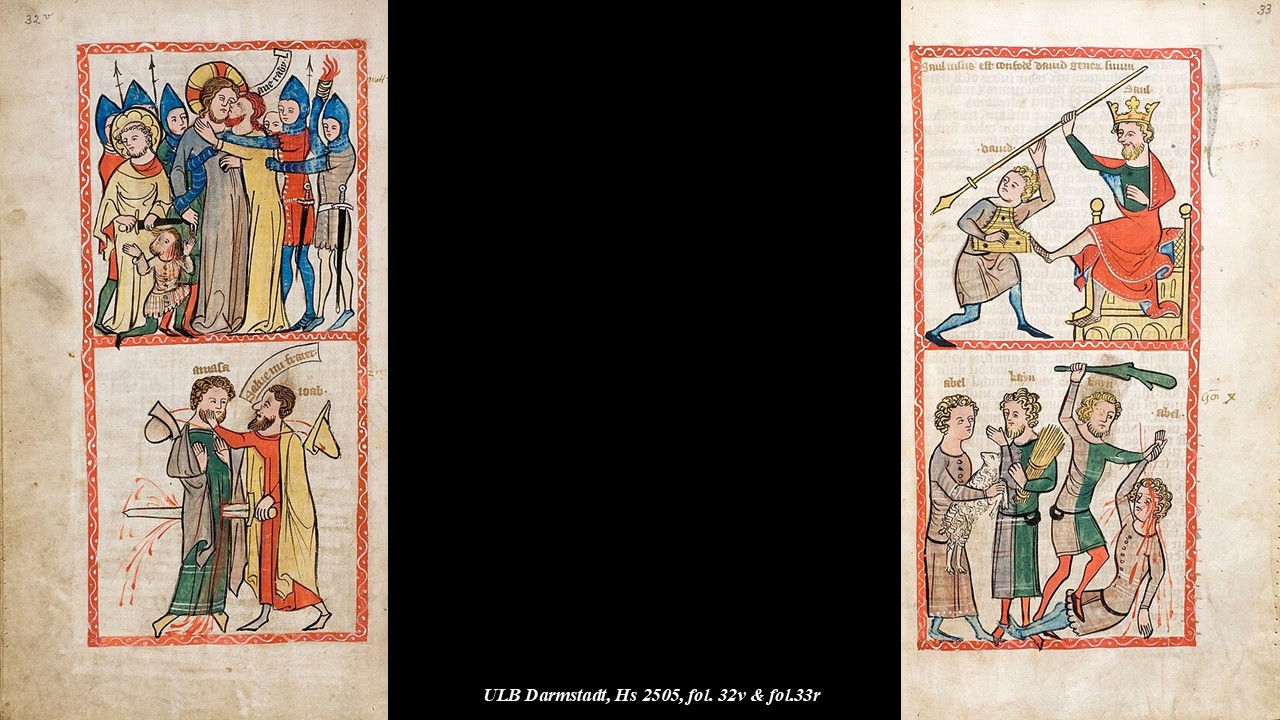 32v
ave rabi
matt.
amasa
Salue mi frater
ioab.
33
Saul uisus est confode dauid gener suum
Saul.
.dauid.
abel
kayn
kayn
.abel.
ULB Darmstadt, Hs 2505, fol. 32v & fol.33r